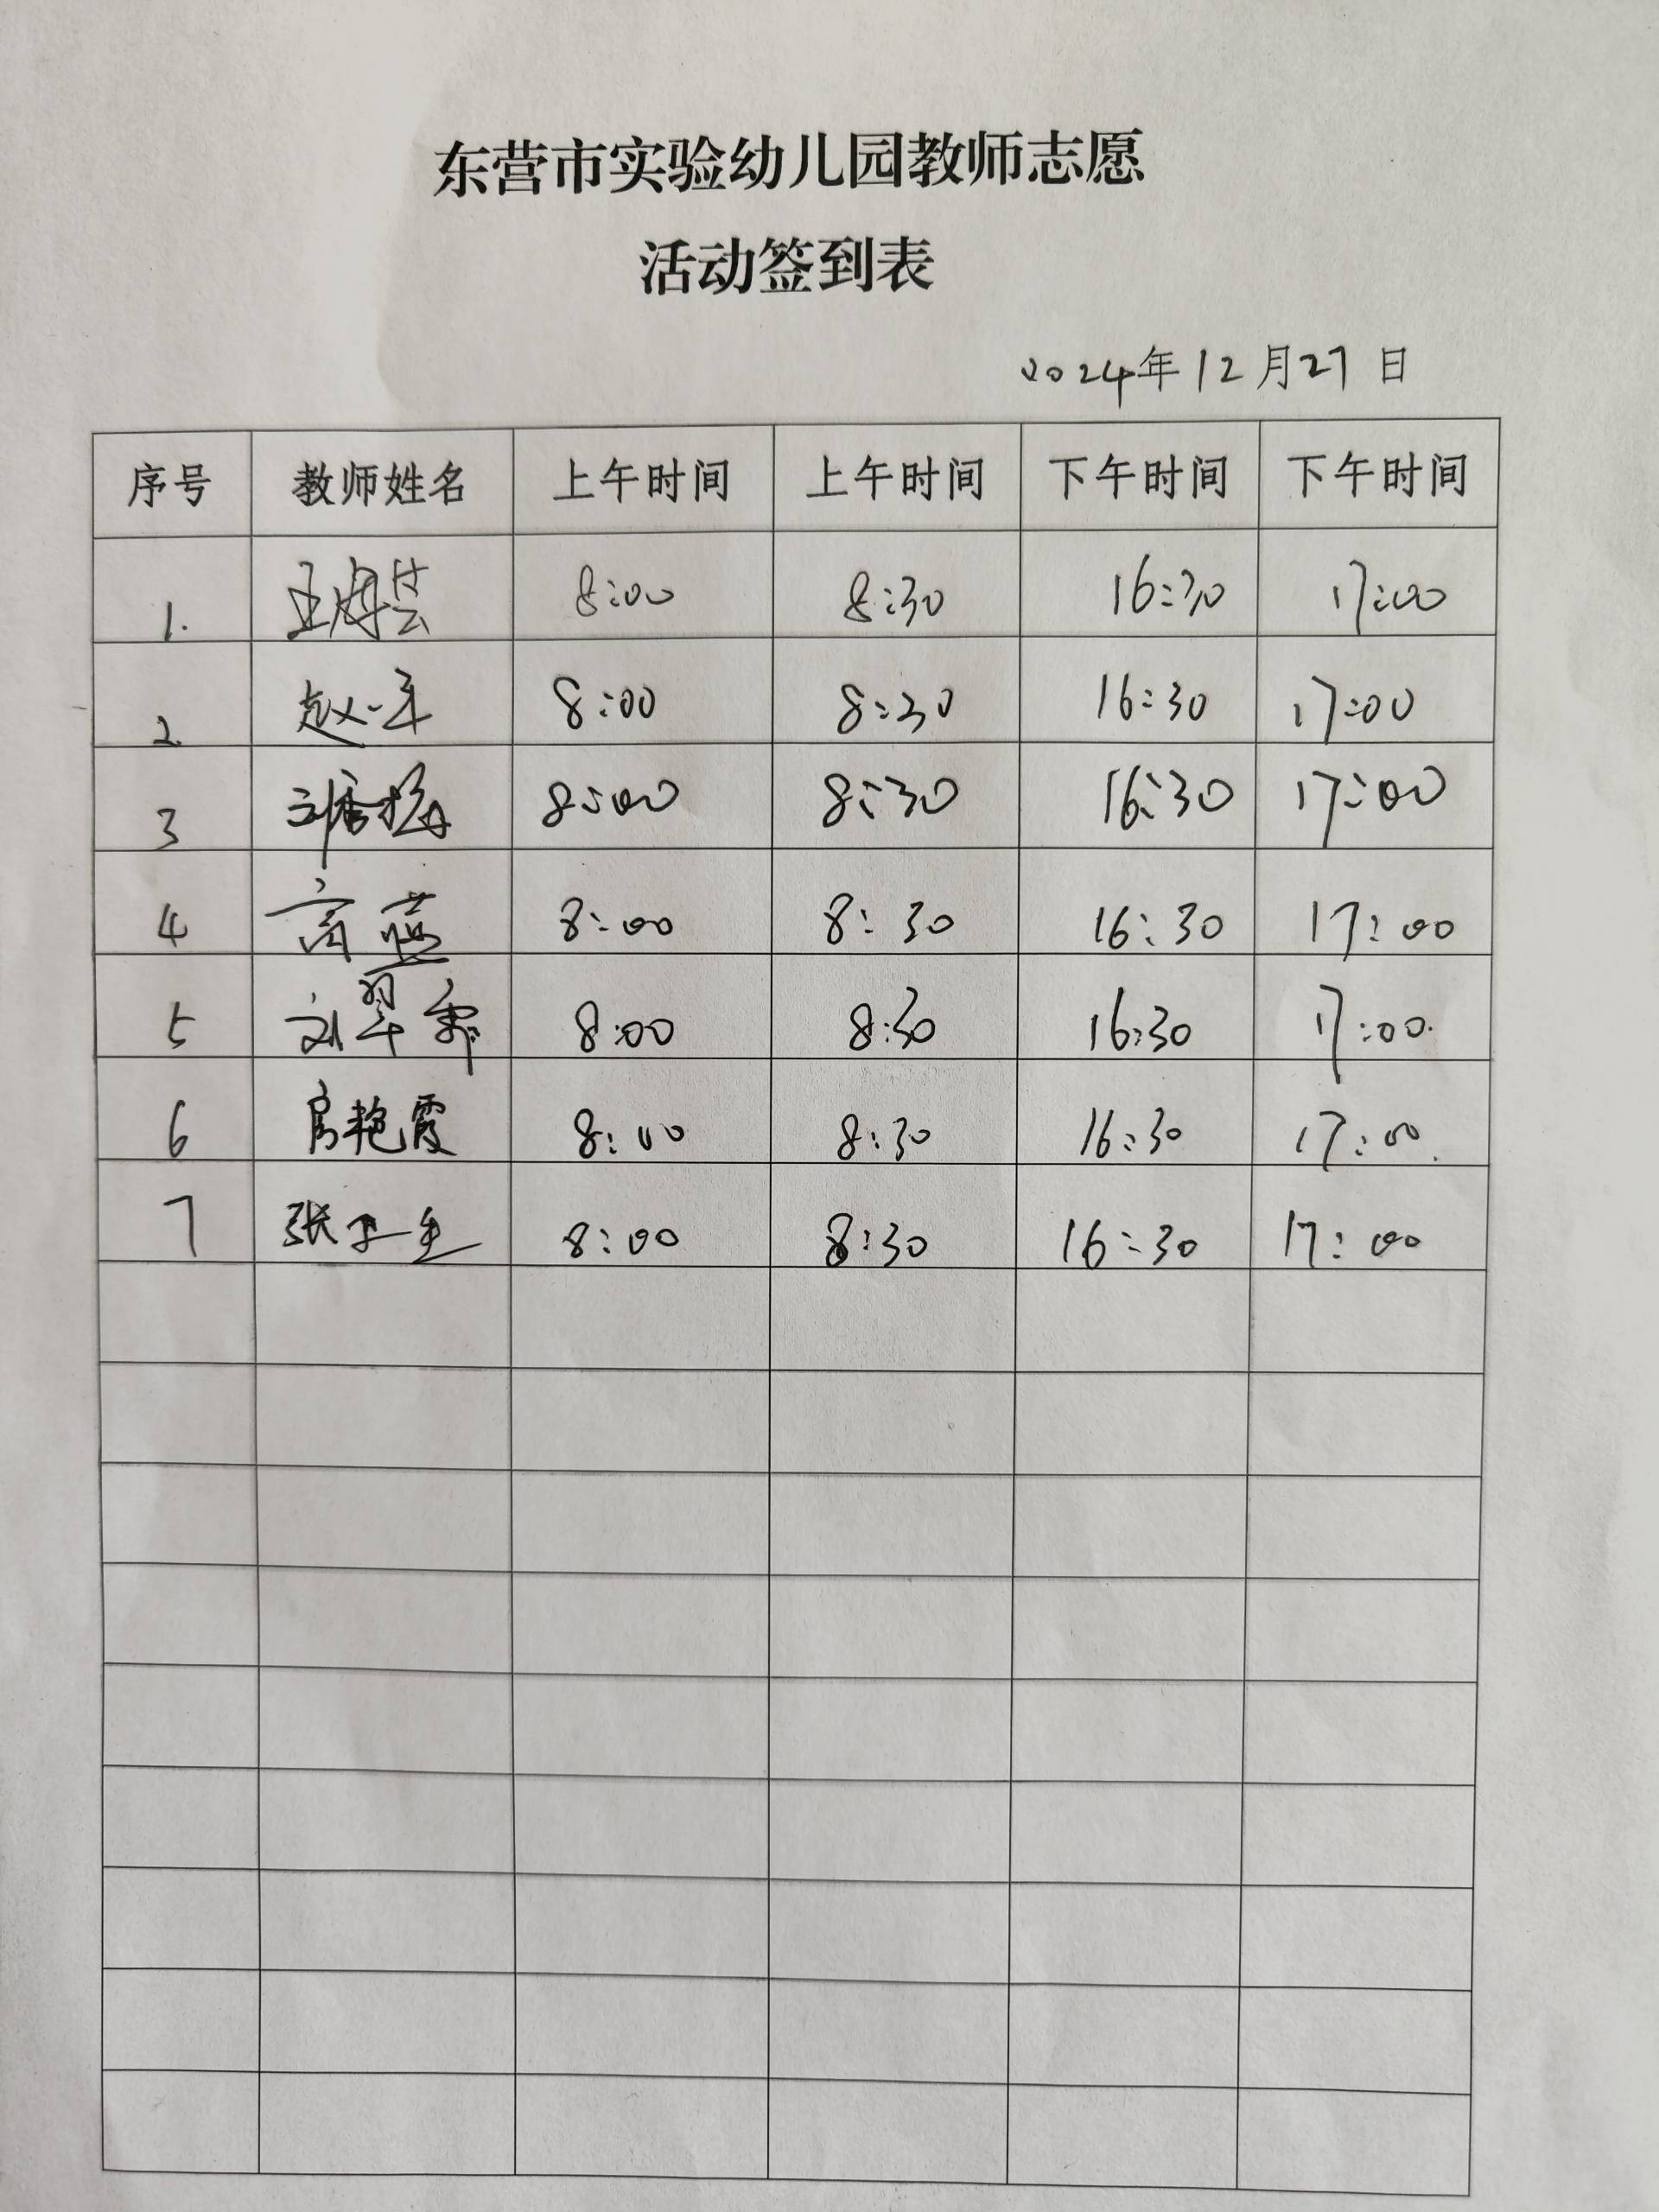 东营市实验幼儿园教师志愿
活动签到表
2024年12月27日
序号 教师姓名 上午时间 上午时间 下午时间 下午时间
1. 王海芸 8:00 8:30 16:30 17:00
2 赵一 8:00 8:30 16:30 17:00
3 8:00 8:30 16:30 17:00
4 高蓝 8:00 8:30 16:30 17:00
5 刘翠 8:00 8:30 16:30 17:00.
6 房艳霞 8:00 8:30 16:30 17:00.
7 张 8:00 8:30 16:30 17:00